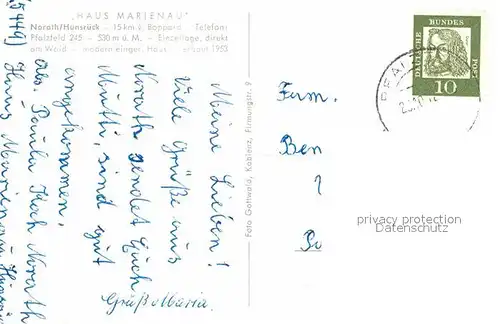 „HAUS MARIENAU"
Norath/Hunsrück — 15 km v. Boppard Telefon:
Pfalzfeld 245 — 530 m ü. M. — Einzellage, direkt
am Wald — modern einger. Haus — erbaut 1953
Meine Lieben!
Viele Grüße aus
Norath sendet Euch
Mutti, sind gut
angekommen.
Abs. Paula Koch Norath
(5449) Haus Marienau
Gruß Maria.
Foto Gottwald, Koblenz, Firmungstr. 9
Fam.
Ben
DEUTSCHE
BUNDES
POST
10
privacy protection
Datenschutz